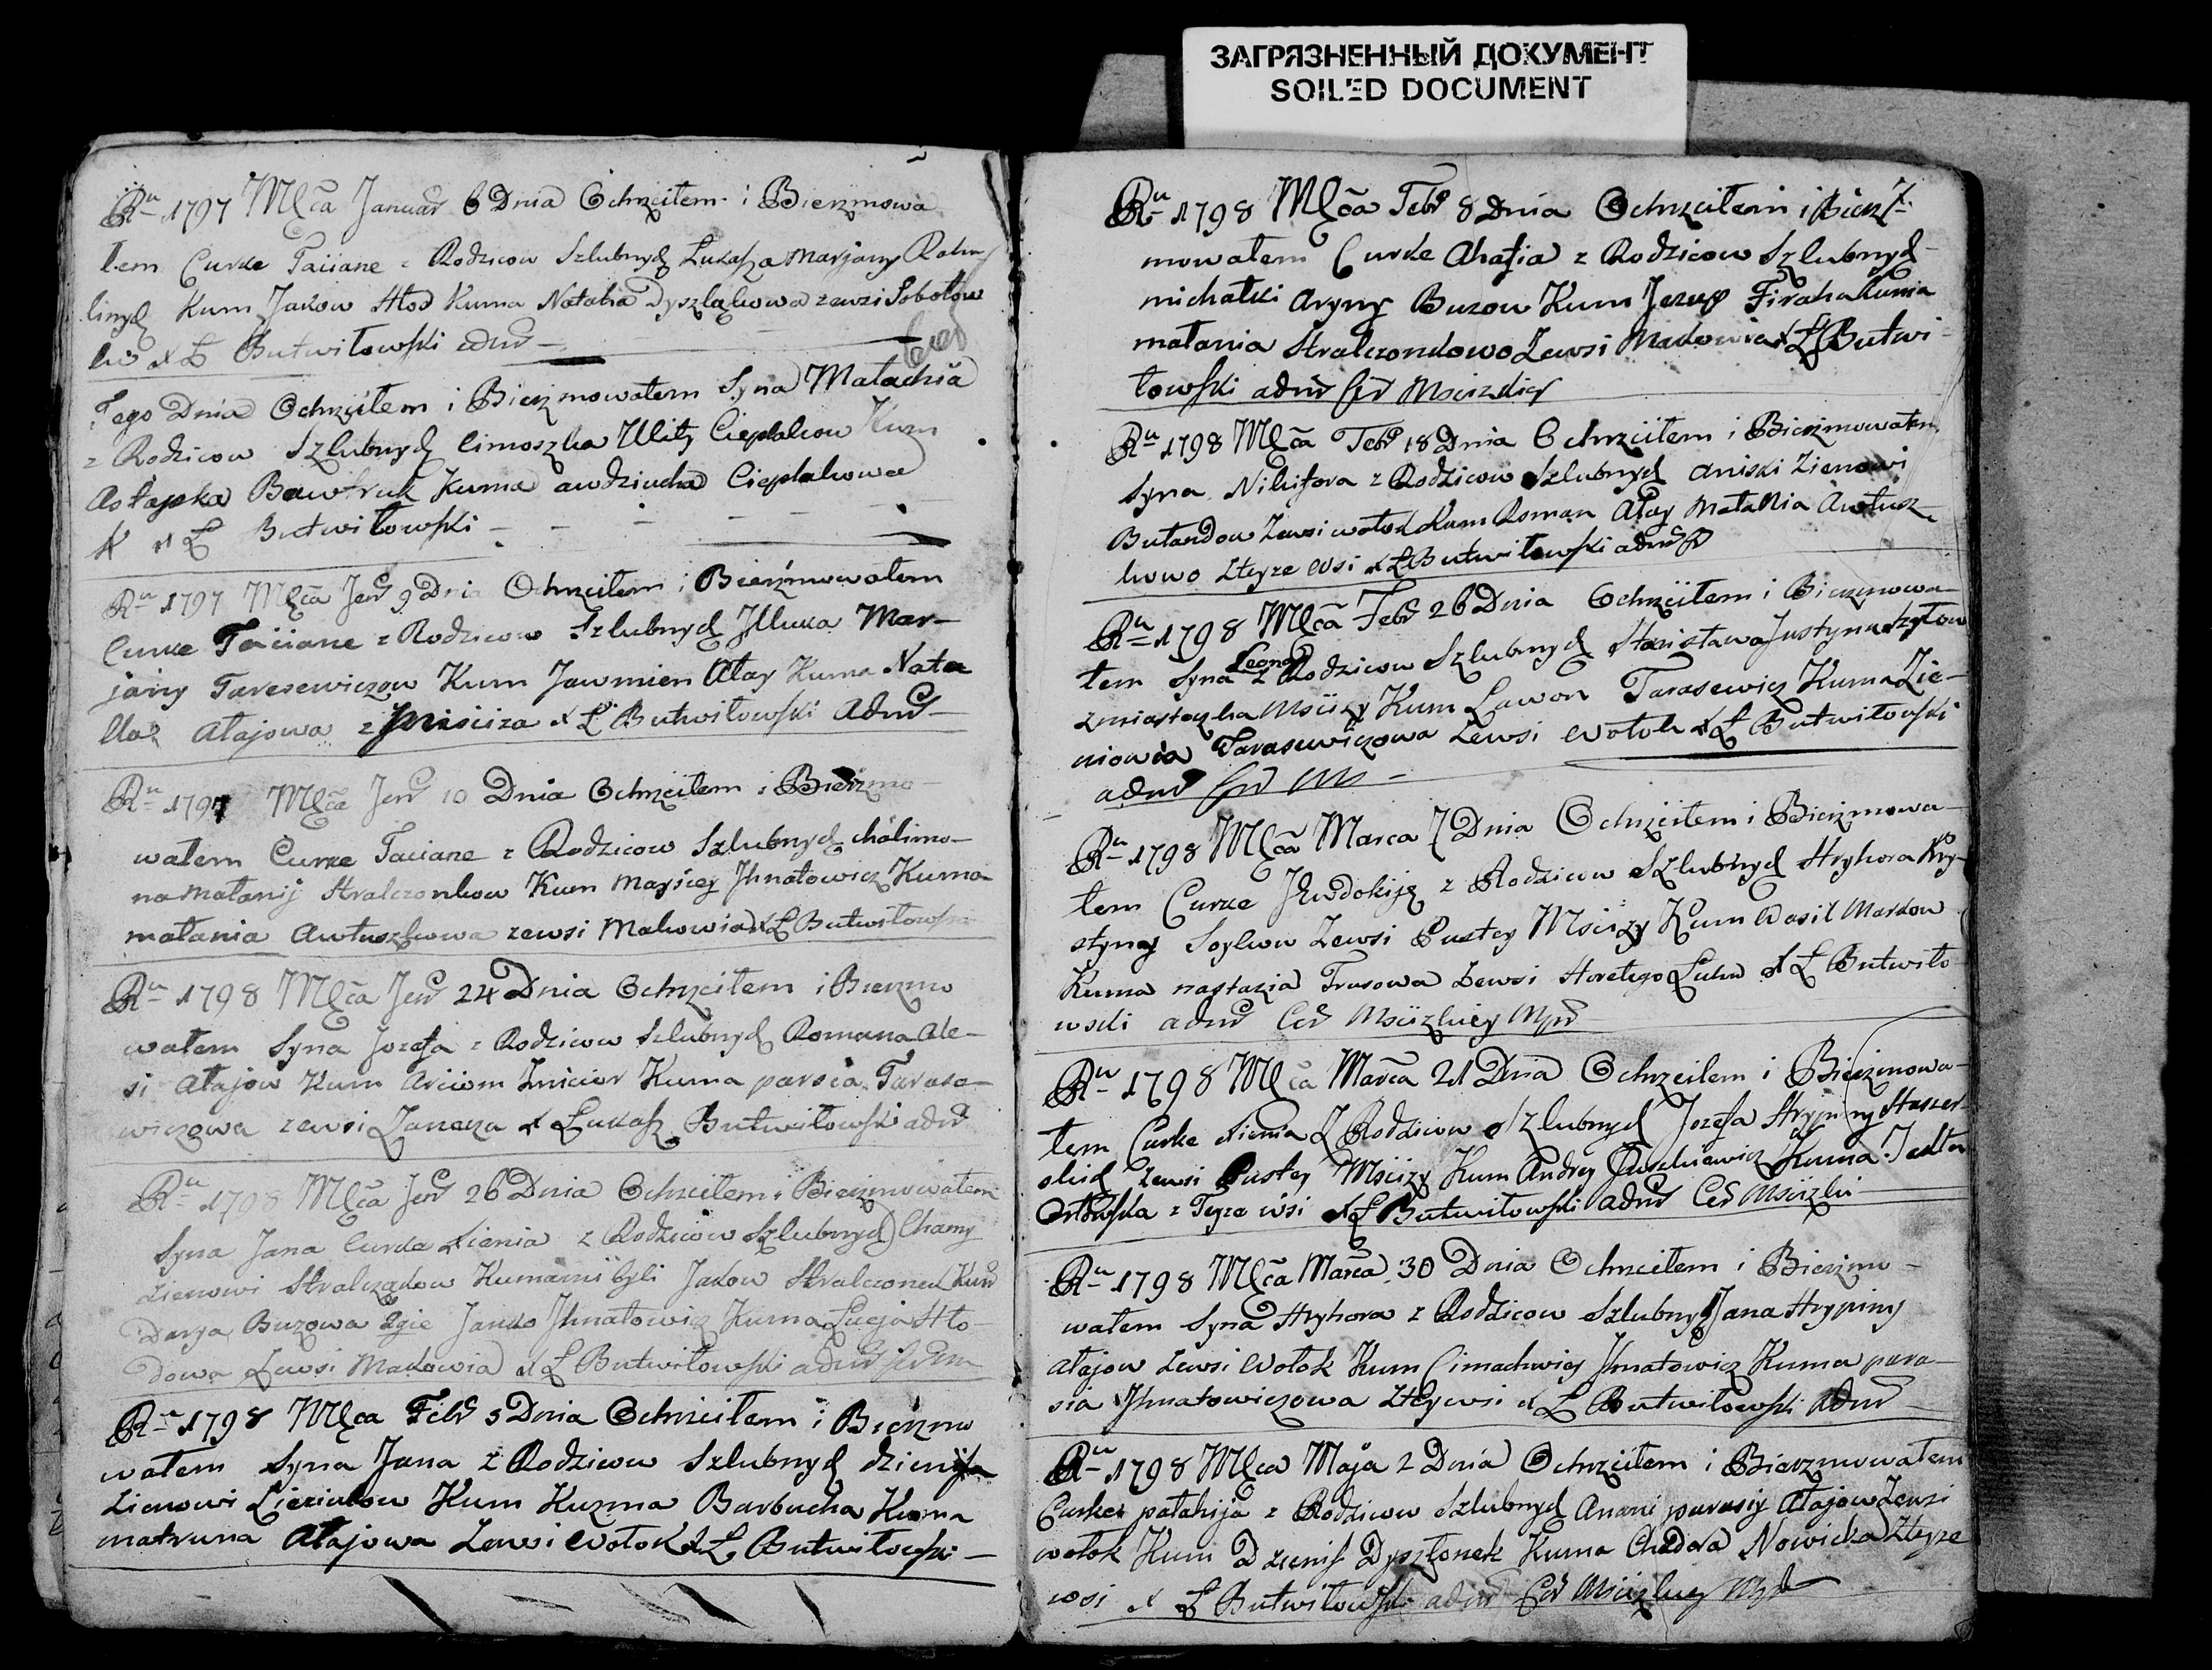 ЗАГРЯЗНЕННЫЙ ДОКУМЕНТ
SOILED DOCUMENT
Ru 1797 Mca Januar 6 Dnia Ochrzciłem i Bierzmowa
łem Curke Taciane z Rodzicow Szlubnych Łukasza Marjany
Kum Jakow Hłod Kuma Natalia Dyszlakowa zewsi
X Ł Butwiłowski adm
Tego Dnia Ochrzciłem i Bierzmowałem Syna Małachia
z Rodzicow Szlubnych Cimoszka Ulity Cieplakow Kum
Astapka Bawtruk Kuma audziucha Cieplakowa
X Ł Butwiłowski
Ru 1797 Mca Jen 9 Dnia Ochrzciłem i Bierzmowałem
Curke Taciane z Rodzicow Szlubnych Illuka Mar-
jany Taresewiczow Kum Jawmien Ałay Kuma Nata
Ałajowa z Msciza X Ł Butwiłowski Adm
Ru 1797 Mca Jen 10 Dnia Ochrzciłem i Bierzmo
wałem Curke Taciane z Rodzicow Szlubnych chalimo-
na małanij Stralczonkow Kum Mayściey Jhnatowicz Kuma
małania Awłuszkowa zewsi Makowia X Ł Butwiłowski
Ru 1798 Mca Jen 24 Dnia Ochrzciłem i Bierzmo
wałem Syna Jozefa z Rodzicow Szlubnych Romana Ale-
si Ałajow Kum Arciom Kuma parsia Tarasa-
wiczowa zewsi X Łukasz Butwiłowski adm
Ru 1798 Mca Jen 26 Dnia Ochrzciłem i Bierzmowałem
Syna Jana Curke Xienia z Rodzicow Szlubnych Chamy
Zienowi Stralczakow Kumami byli Jakow Stralczonek Kum
Darya Buzowa 2gie Janko Jhnatowicz Kuma Łucja Hło-
dowa Zewsi Makowia X Ł Butwiłowski adm
Ru 1798 Mca Febr 5 Dnia Ochrzciłem i Bierzmo
wałem Syna Jana z Rodzicow Szlubnych dzienisa
Zienowi Kum Kuzma Barbucha Kuma
matruna Ałajowa Zewsi Wołok X Ł Butwiłowski
Ru 1798 Mca Febr 8 Dnia Ochrzciłem i Bierz
mowałem Curke Ahafia z Rodzicow Szlubnych
michałki Aryny Buzow Kum Jezup Kuma
małania Stralczonkowa Zewsi Makowia X Ł Butwi-
łowski adm
Ru 1798 Mca Febr 18 Dnia Ochrzciłem i Bierzmowałem
Syna Nikifora z Rodzicow Szlubnych aniski Zienowi
Zewsi wołok Kum Roman Ałay Małania Awłusz
kowo zteyze wsi X Ł Butwiłowski adm
Ru 1798 Mca Febr 26 Dnia Ochrzciłem i Bierzmowa
łem Syna Leona z Rodzicow Szlubnych Stanisława Justyny
zmiasteczka Mscizy Kum Lawon Tarasewicz Kuma Zie-
niowia Tarasewiczowa Zewsi Wołok X Ł Butwiłowski
adm
Ru 1798 Mca Marca 7 Dnia Ochrzciłem i Bierzmowa
łem Curke Jewdokiję z Rodzicow Szlubnych Hryhora Kry-
styny Zewsi Pustey Mscizy Kum Wasil Markow
Kuma nastazia Trusowa Zewsi Horełego Luhu X Ł Butwiło
wski adm Cer Mscizkiey
Ru 1798 Mca Marca 21 Dnia Ochrzciłem i Bierzmowa-
łem Curke Xienia Z Rodzicow Szlubnych Jozefa Hrypiny
Zewsi Pustey Mscizy Kum Andrey Kuma Jewka
Orłowska z Teyze wsi X Ł Butwiłowski adm Cer
Ru 1798 Mca Marca 30 Dnia Ochrzciłem i Bierzmo-
wałem Syna Hryhora z Rodzicow Szlubnych Jana Hrypiny
Ałajow Zewsi Wołok Kum Cimachwiey Jhnatowicz Kuma para-
sia Jhnatowiczowa Zteywsi X Ł Butwiłowski Adm
Ru 1798 Mca Maja 2 Dnia Ochrzciłem i Bierzmowałem
Curke pałahija z Rodzicow Szlubnych Anani parasiy Ałajow Zewsi
wołok Kum Dzienis Dyszlonek Kuma Chadora Nowicka Zteyze
wsi X Ł Butwiłowski adm Cer Mscizkiey